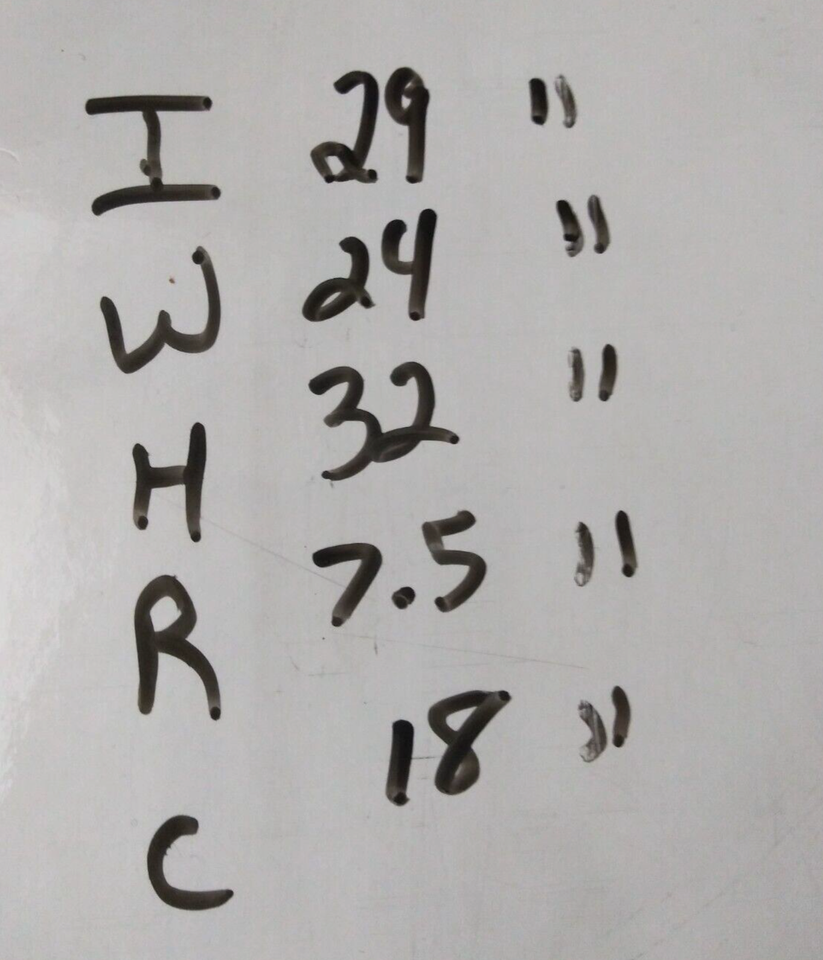 I 29 "
W 24 "
H 32 "
R 7.5 "
C 18 "